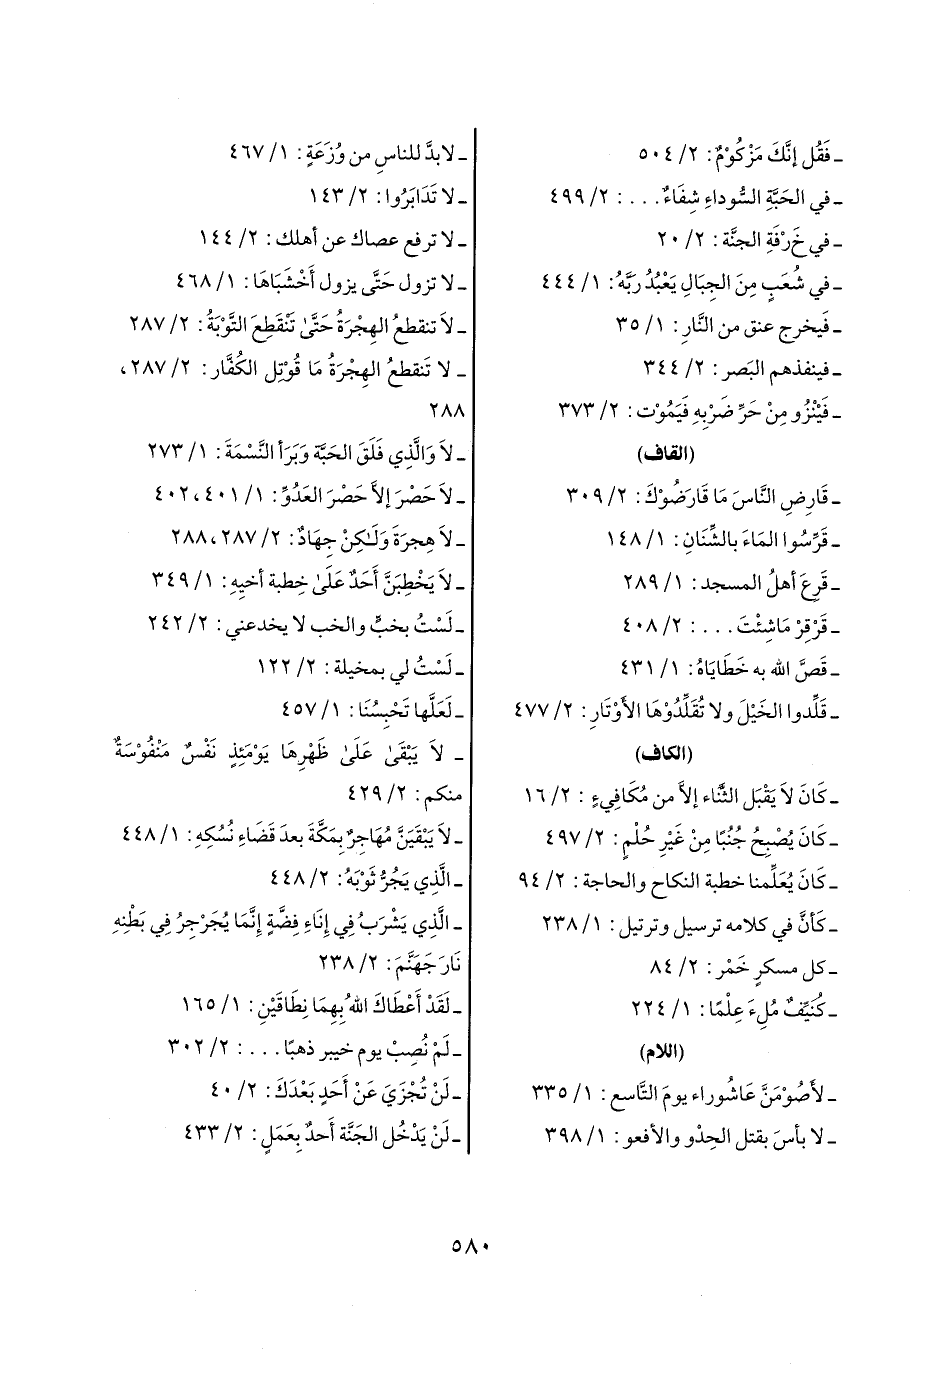 ـ فَقُل إنَّكَ مَزْكُوْمٌ: ٢/ ٥٠٤
ـ في الحَبَّةِ السُّوداءِ شِفَاءٌ. . . : ٢/ ٤٩٩
ـ في خَرْفَةِ الجنَّة: ٢/ ٢٠
ـ في شُعَبٍ مِنَ الجِبَالِ يَعْبُدُ رَبَّهُ: ١/ ٤٤٤
ـ فَيخرج عنق من النَّارِ: ١/ ٣٥
ـ فينفذهم البَصر: ٢/ ٣٤٤
ـ فَيَنْزُو مِنْ حَرِّ ضَرْبِهِ فَيَمُوْت: ٢/ ٣٧٣
(القاف)
ـ قَارِضِ النَّاسَ مَا قَارَضُوْكَ: ٢/ ٣٠٩
ـ قَرِّسُوا المَاءَ بالشِّنَانِ: ١/ ١٤٨
ـ قَرِعَ أهلُ المسجد: ١/ ٢٨٩
ـ قَرْقِرْ مَاشِئْتَ. . . : ٢/ ٤٠٨
ـ قَصَّ الله به خَطَايَاهُ: ١/ ٤٣١
ـ قَلِّدوا الخَيْلَ ولا تُقَلِّدُوْهَا الأَوْتَارِ: ٢/ ٤٧٧
(الكاف)
ـ كَانَ لاَ يَقْبَل الثَّناء إلاَّ من مُكَافِيءٍ: ٢/ ١٦
ـ كَانَ يُصْبِحُ جُنُبًا مِنْ غَيْرِ حُلْمٍ: ٢/ ٤٩٧
ـ كَانَ يُعَلِّمنا خطبة النكاح والحاجة: ٢/ ٩٤
ـ كَأنَّ في كلامه ترسيل وترتيل: ١/ ٢٣٨
ـ كل مسكرٍ خَمْر: ٢/ ٨٤
ـ كُنَيِّفٌ مُلِءَ عِلْمًا: ١/ ٢٢٤
(اللام)
ـ لأَصُوْمَنَّ عَاشُوراء يومَ التَّاسع: ١/ ٣٣٥
ـ لا بأسَ بقتل الحِدْو والأفعو: ١/ ٣٩٨
ـ لابدَّ للناسِ من وُزَعَةٍ: ١/ ٤٦٧
ـ لا تَدَابَرُوا: ٢/ ١٤٣
ـ لا ترفع عصاك عن أهلك: ٢/ ١٤٤
ـ لا تزول حَتَّى يزول أَخْشَبَاهَا: ١/ ٤٦٨
ـ لاَ تنقطعُ الهِجْرَةُ حَتَّىٰ تَنْقَطِعَ التَّوْبَةُ: ٢/ ٢٨٧
ـ لا تَنقطعُ الهِجْرَةُ مَا قُوْتِل الكُفَّار: ٢/ ٢٨٧،
٢٨٨
ـ لاَ وَالَّذِي فَلَقَ الحَبَّة وَبَرَأ النَّسْمَةَ: ١/ ٢٧٣
ـ لاَ حَصْرَ إلاَّ حَصْرَ العَدُوِّ: ١/ ٤٠١، ٤٠٢
ـ لاَ هِجرَةَ وَلَـٰكِنْ جِهَادٌ: ٢/ ٢٨٧، ٢٨٨
ـ لاَ يَخْطِبَنَّ أَحَدٌ عَلَىٰ خِطبة أخيهِ: ١/ ٣٤٩
ـ لَسْتُ بخبٍّ والخب لا يخدعني: ٢/ ٢٤٢
ـ لَسْتُ لي بمخيلة: ٢/ ١٢٢
ـ لَعَلَّها تَحْبِسُنَا: ١/ ٤٥٧
ـ لاَ يَبْقَىٰ عَلَىٰ ظَهْرِهَا يَوْمَئِذٍ نَفْسٌ مَنْفُوْسَةٌ
منكم: ٢/ ٤٢٩
ـ لاَ يَبْقَيَنَّ مُهَاجِرٌ بِمَكَّةَ بعدَ قَضَاءِ نُسُكِهِ: ١/ ٤٤٨
ـ الَّذِي يَجُرُّ ثَوْبَهُ: ٢/ ٤٤٨
ـ الَّذِي يَشْرَبُ فِي إِنَاءِ فِضَّةٍ إِنَّمَا يُجَرْجِرُ فِي بَطْنِهِ
نَارَ جَهَنَّمَ: ٢/ ٢٣٨
ـ لَقَدْ أَعْطَاكَ اللهُ بِهِمَا نِطَاقَيْنِ: ١/ ١٦٥
ـ لَمْ نُصِبْ يوم خيبر ذهبًا. . . : ٢/ ٣٠٢
ـ لَنْ تُجْزَيَ عَنْ أَحَدٍ بَعْدَكَ: ٢/ ٤٠
ـ لَنْ يَدْخُل الجَنَّة أَحدٌ بِعَمَلٍ: ٢/ ٤٣٣
٥٨٠